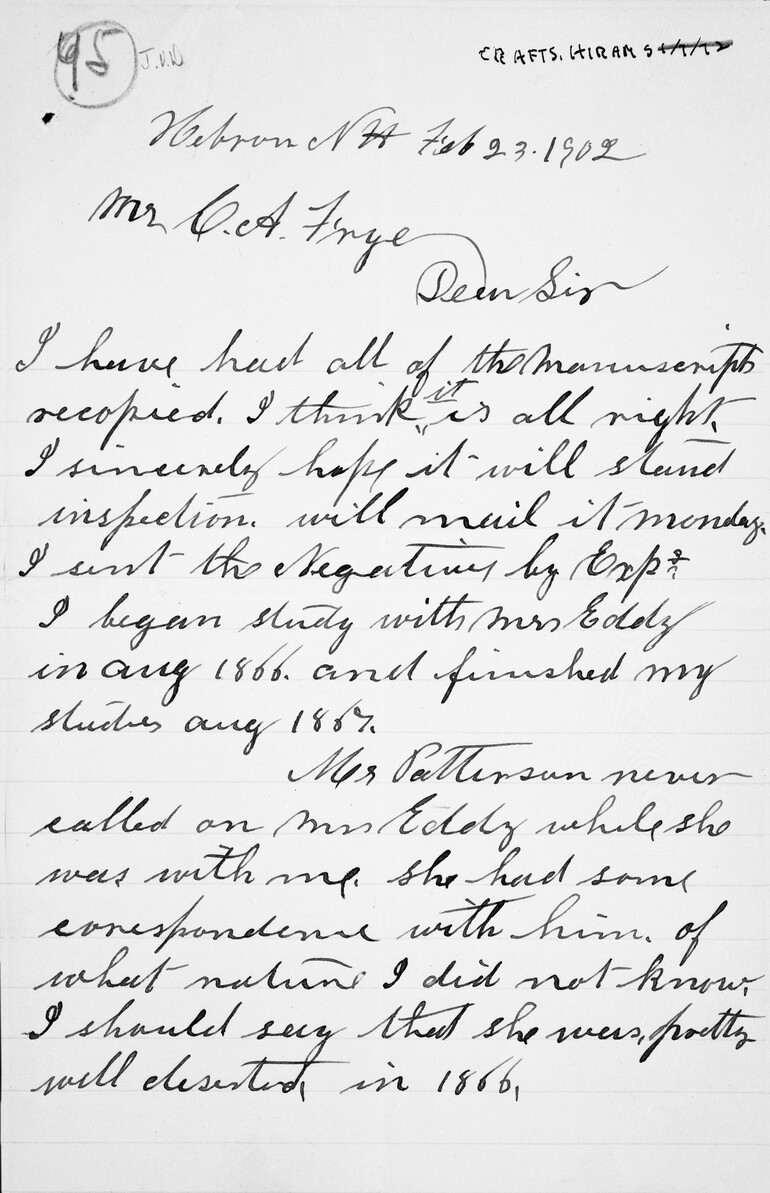 95
J.V.D
CRAFTS, HIRAM S
Hebron NH Feb 23. 1902
Mr C. A. Frye
Dear Sir
I have had all of the Manuscripts
recopied. I think it is all right.
I sincerely hope it will stand
inspection. will mail it monday.
I sent the Negatives by Exp
I began study with Mrs Eddy
in aug 1866. and finished my
studies aug 1867.
Mr Patterson never
called on Mrs Eddy while she
was with me. she had some
correspondence with him. of
what nature I did not know.
I should say that she was, pretty
well deserted, in 1866,